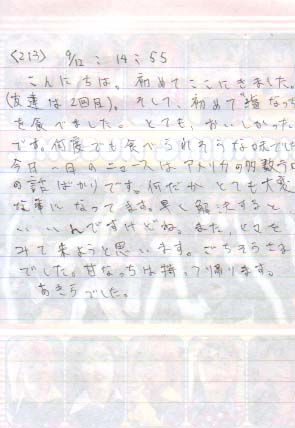 〈213〉 9/12 : 14 : 55
こんにちは。初めてここにきました。
(友達は2回目)。そして、初めて"塩なっち
を食べました。とても、おいしかった
です。何度でも食べられそうな味でした
今日一日のニュースはアメリカの
の話ばかりです。何だか とても大変
な事になってます。早く解決すると
いいんですけどね。また、ヒマを
みて来ようと思います。ごちそうさま
でした。甘なっちは持って帰ります。
あきらでした。